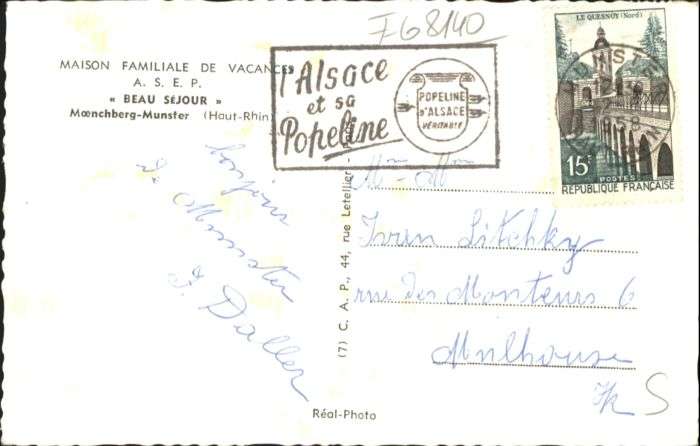 F68140
MAISON FAMILIALE DE VACANCES
A. S. E. P.
« BEAU SÉJOUR »
Mœnchberg-Munster (Haut-Rhin)
l'Alsace
et sa
Popeline
POPELINE
D'ALSACE
VÉRITABLE
LE QUESNOY (Nord)
MUNSTER
1958
15F
POSTES
RÉPUBLIQUE FRANÇAISE
bonjour
De Munster
J. Daller
(7) C. A. P., 44, rue Letellier - Paris
Mr - Mme
Ivren Litchky
rue des Monteurs 6
Mulhouse
S
Réal-Photo